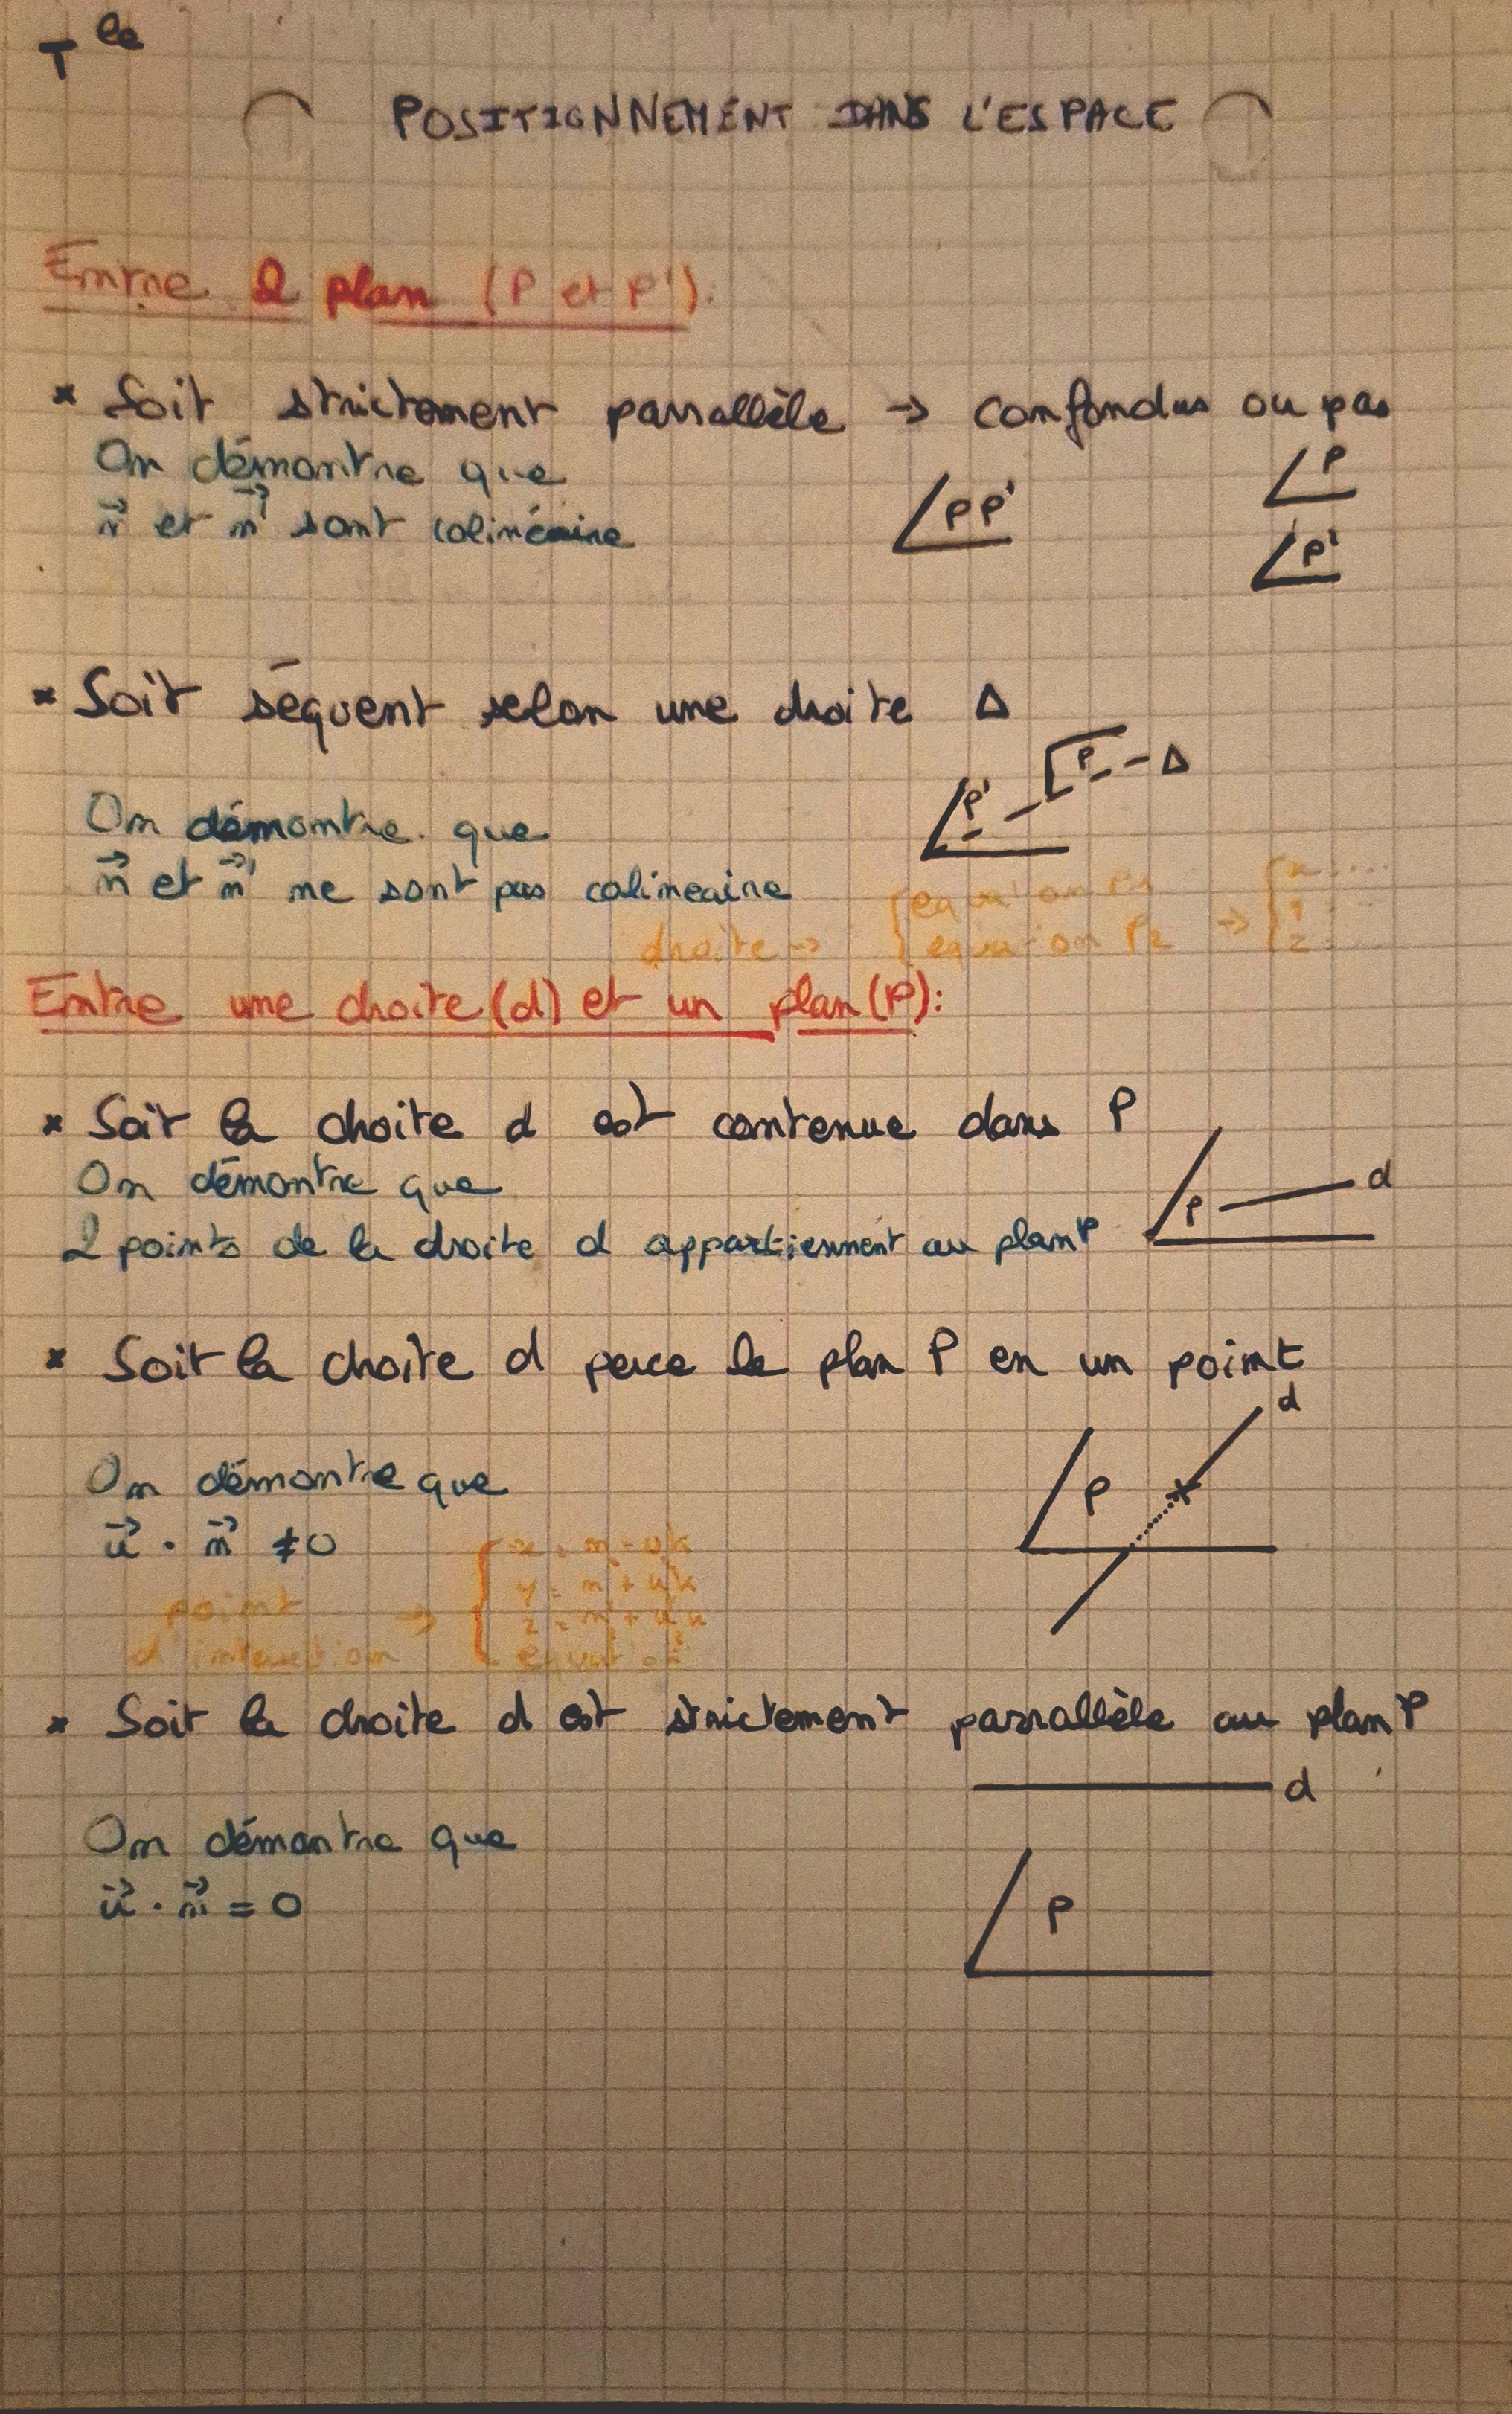 Tle
POSITIONNEMENT DANS L'ESPACE
Entre 2 plan (P et P'):
* Soit strictement parrallèle → confondus ou pas
On démontre que
n⃗ et n⃗' sont colinéaire
PP'
P
P'
* Soit séquent selon une droite Δ
P' P Δ
On démontre que
n⃗ et n⃗' ne sont pas colineaire
droite → { equation P1 equation P2 → { x : .... y : ... z : ...
Entre une droite (d) et un plan (P):
* Soit la droite d est contenue dans P
On démontre que
2 points de la droite d appartiennent au plan P
P d
* Soit la droite d perce le plan P en un point
d
P
On démontre que
u⃗ · n⃗ ≠ 0
point → {
d'intersection equation
* Soit la droite d est strictement parrallèle au plan P
d
On démontre que
u⃗ · n⃗ = 0
P